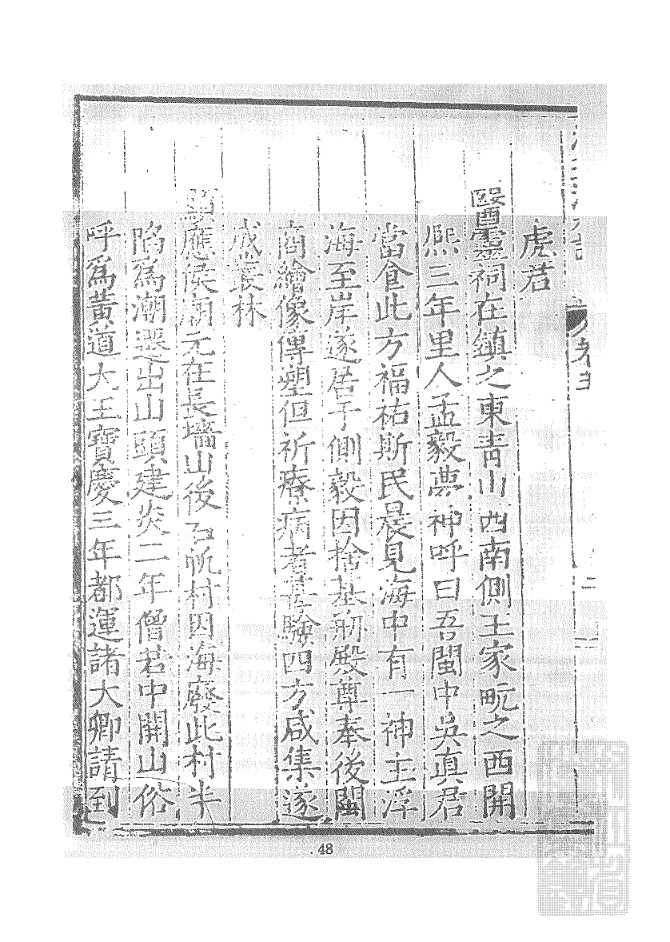 虎君
醫靈祠在鎮之東青山西南側王家畹之西開
熙三年里人孟毅夢神呼曰吾閩中吳真君
當食此方福祐斯民晨見海中有一神王浮
海至岸遂居于側毅因捨基剏殿尊奉後閩
商繪像傳塑但祈療病者甚驗四方咸集遂
成叢林
顯應侯廟元在長墻山後 村因海廢此村半
陷為潮遷出山頭建炎二年僧若中開山俗
呼為黃道大王寶慶三年都運諸大卿請到
48